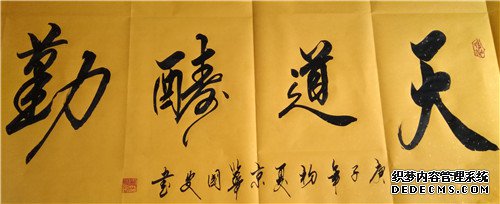 天道醻勤
庚子年初夏京華国史书
织梦内容管理系统
DEDECMS.COM